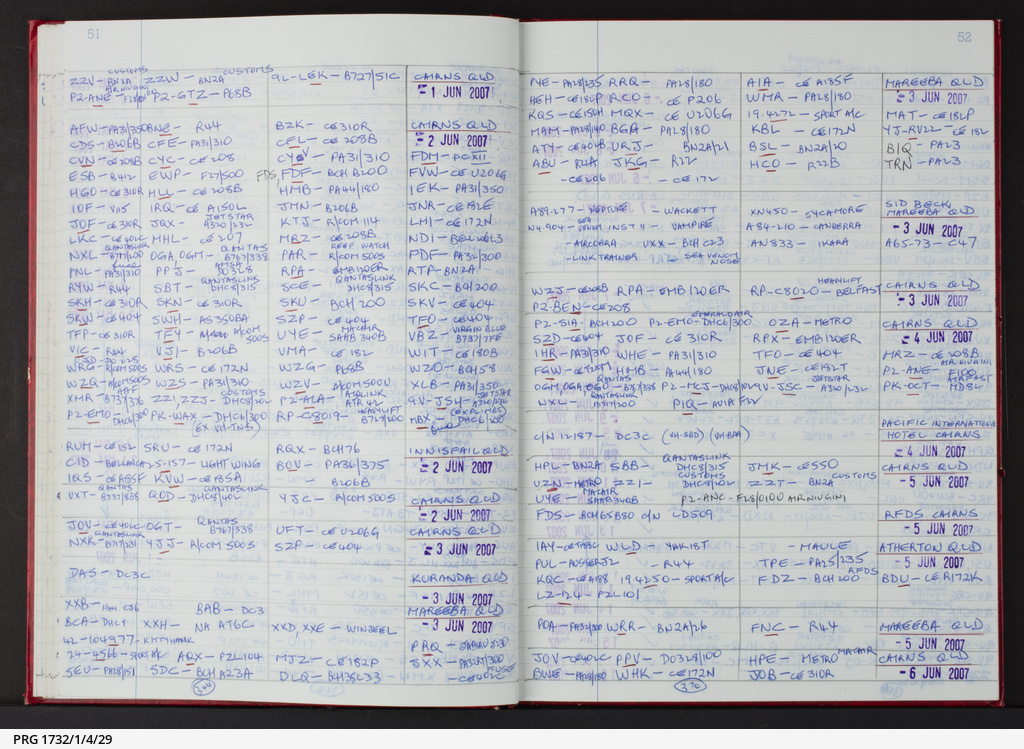 51
CUSTOMS CUSTOMS
ZZV - BN2A ZZW - BN2A 9L-LEK - B727/51C CAIRNS QLD
P2-ANE - F28/0100 AIR NIUGINI P2-GTZ - PC8B - 1 JUN 2007
AFW - PA31/350 BNE - R44 BZK - CE310R CAIRNS QLD
CDS - B206B CFE - PA31/310 CFL - CE 208B - 2 JUN 2007
CVN - CE208B CYC - CE208 PA31/310 FDM - PC XII
ESB - B412 EWP - F27/500 FDS, FDF - BCH B200 FVW - CE U206G
HGO - CE310R HLL - CE208B HMB - PA44/180 IEK - PA31/350
IOF - V115 IRQ - CE A150L JMN - B206B JNR - CE182E
JOF - CE310R JQX - JETSTAR A320/232 KTJ - R/COM 114 LHI - CE172N
LKC - MHL - CE207 MRZ - CE208B NDI - BELL206L3
NXL - B717/200 QANTASLINK OGA, OGM - QANTAS B767/338 PAR - REEF WATCH R/COM500S PDF - PA32/300
PNL - PA31/310 PPJ - AMSA DO328 RPA - EMB120ER RTP - BN2A
RYW - R44 SBT - QANTASLINK DHC8/315 SCE - QANTASLINK DHC8/315 SKC - BCH200
SKH - CE310R SKN - CE310R SKU - BCH200 SKV - CE404
SRW - CE404 SWH - AS350BA SZP - CE404 TFO - CE404
TFP - CE310R TFY - A/COM 500S UYE - MACAIR SAAB 340B VBZ - VIRGIN BLUE B737/7FE
VIC - R44 VJI - B206B VMA - CE182 WIT - CE180B
WRG - R/COM500S WRS - CE172N WZG - PC8B WZO - BCH58
WZQ - A/COM500S WZS - PA31/310 WZV - A/COM500U XLB - PA31/350
XMR - B737/376 ZZI, ZZJ - CUSTOMS DHC8/202 P2-ALA - AIRLINK ATR42 9V-JSH - JETSTAR A320/232
P2-EMO - DHC6/300 PK-WAX - DHC6/300 RP-C8019 - HEAVYLIFT B727/200 HBX - (EX PL1MBS) DHC6/200
(EX VH-TNS)
RUM - CE152 SRU - CE172N RQX - BCH76 INNISFAIL QLD
CID - BELLANCA 25-157 - LIGHTWING BOV - PA36/375 - 2 JUN 2007
IQS - CE A185F KVW - CE185A - B206B
VXT - QANTAS B737/838 QOD - QANTASLINK DHC8/402 YJC - A/COM500S CAIRNS QLD
- 2 JUN 2007
JOV - CE402C OGT - QANTAS B767/338 UFT - CE U206G CAIRNS QLD
NXK - QANTASLINK B717/231 YJJ - A/COM 500S SZP - CE404 - 3 JUN 2007
DAS - DC3C KURANDA QLD
- 3 JUN 2007
XXB - BAB - DC3 MAREEBA QLD
BCA - DHC1 XXH - NA AT6C XXD, XXE - WINJEEL - 3 JUN 2007
42-104977 - KITTYHAWK PRQ - JABIRU J130
24-4566 - SPORT A/C AQX - PZL104 MJZ - CE182P SXX - PA32RT/300
SEU - PA28/151 SDC - BCH A23A DLQ - BCH35C33 - CE402C
52
PVE - PA28/235 RRQ - PA28/180 AIA - CE A185F MAREEBA QLD
HEH - CE182P RCO - CE P206 WMR - PA28/180 - 3 JUN 2007
KQS - CE150H MQX - CE U206G 19-4272 - SPORT A/C MAT - CE182P
MAM - PA28/140 BGA - PA28/180 KBL - CE172N YJ-RV22 - CE182
ATY - CE404B URJ - BN2A/21 BSL - BN2A/20 BIQ - PA23
ABU - R22A JKG - R22 HCO - R22B TRN - PA23
- CE206 - CE172
A89-277 - NEPTUNE - WACKETT XN450 - SYCAMORE SID BECK
MAREEBA QLD
N4-904 - SEA VENOM INST 11 - VAMPIRE A84-210 - CANBERRA - 3 JUN 2007
- AIRCOBRA UXX - BCH C23 AN833 - IKARA A65-73 - C47
- LINK TRAINER SEA VENOM NOSE
WZJ - CE208B RPA - EMB120ER RP-C8020 - HEAVYLIFT BELFAST CAIRNS QLD
P2-BEN - CE208 - 3 JUN 2007
P2-SIA - BCH200 P2-EMO - EMERALD AIR DHC6/300 OZA - METRO CAIRNS QLD
SZD - CE404 JOF - CE310R RPX - EMB120ER - 4 JUN 2007
IHR - PA31/310 WHE - PA31/310 TFO - CE404 MRZ - CE208B
FGW - CE T207 HMB - PA44/180 WZT - BN2A P2-ANE - F100 AIR NIUGINI
OGM, OGA, OGO - QANTAS B767/338 P2-MCJ - DHC8/102 9V-JSC - JETSTAR A320/232 PK-OCT - AIRFAST MD82
NXL - QANTASLINK B717/200 PIQ - AVIA FLV
C/N 12187 - DC3C (VH-SBD) (VH-BPA) PACIFIC INTERNATIONAL
HOTEL CAIRNS
- 4 JUN 2007
HPL - BN2A SBB - QANTASLINK DHC8/315 JMK - CE550 CAIRNS QLD
UZN - METRO ZZI - CUSTOMS DHC8/202 ZZT - CUSTOMS BN2A - 5 JUN 2007
UYE - MACAIR SAAB340B P2-ANC - F28/0100 AIR NIUGINI
FDS - BCH65B80 C/N LD509 RFDS CAIRNS
- 5 JUN 2007
IAY - WLD - YAK18T - MAULE ATHERTON QLD
PUL - AUSTER J2 - R44 TPE - PA25/235 - 5 JUN 2007
KQC - CE A188 19-4250 - SPORT A/C FDZ - RFDS BCH200 BDU - CE R172K
LZ-124 - PZL101
POA - PA32/300 WRR - BN2A/26 FNC - R44 MAREEBA QLD
- 5 JUN 2007
JOV - CE402C PPV - DO328/100 HPE - METRO MACAIR CAIRNS QLD
BWE - PA28/180 WHK - CE172N JOB - CE310R - 6 JUN 2007
370
PRG 1732/1/4/29